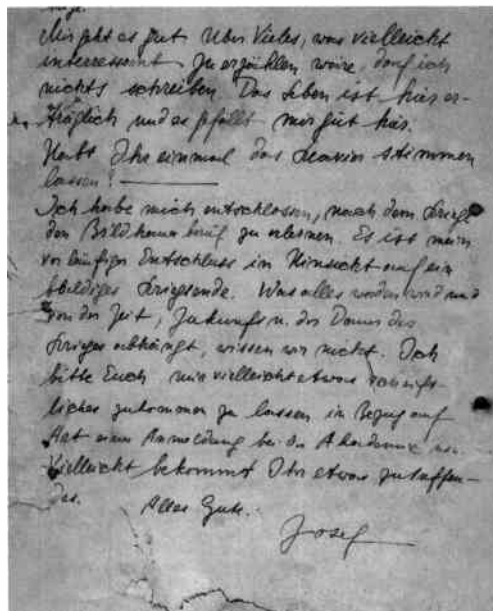 Mir geht es gut Über Vieles, was vielleicht
interressant zu erzählen wäre, darf ich
nichts schreiben. Das Leben ist hier er-
träglich und es gefällt mir gut hier.
Habt Ihr einmal das Klavier stimmen
lassen?
Ich habe mich entschlossen, nach dem Kriege
den Bildhauerberuf zu erlernen. Es ist mein
vorläufiger Entschluss in Hinsicht auf ein
baldiges Kriegsende. Was alles werden wird und
von der Zeit, Zukunft u. der Dauer des
Krieges abhängt, wissen wir nicht. Ich
bitte Euch mir vielleicht etwas
zukommen zu lassen in Bezug auf
Art einer Anmeldung bei der Akademie
Vielleicht bekommt Ihr etwas zutreffen-
des. Alles Gute.
Josef